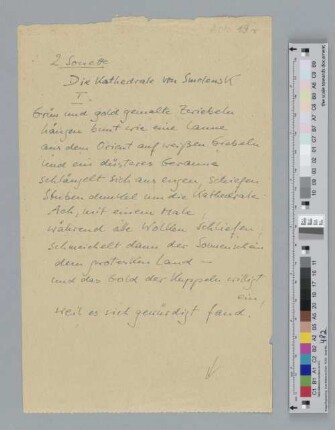 2 Sonette
Die Kathedrale von Smolensk
I.
Grün und gold gemalte Zwiebeln
hängen bunt wie eine Laune
aus dem Orient auf weißen Giebeln
und ein düsteres Geraune
schlängelt sich aus engen, schiefen
Stuben dunkel um die Kathedrale.
Ach, mit einem Male
während alle Wolken schliefen,
schmeichelt dann der Sonnenschein
dem Land —
und das Gold der Kuppeln willigt
ein,
weil es sich gewürdigt fand.